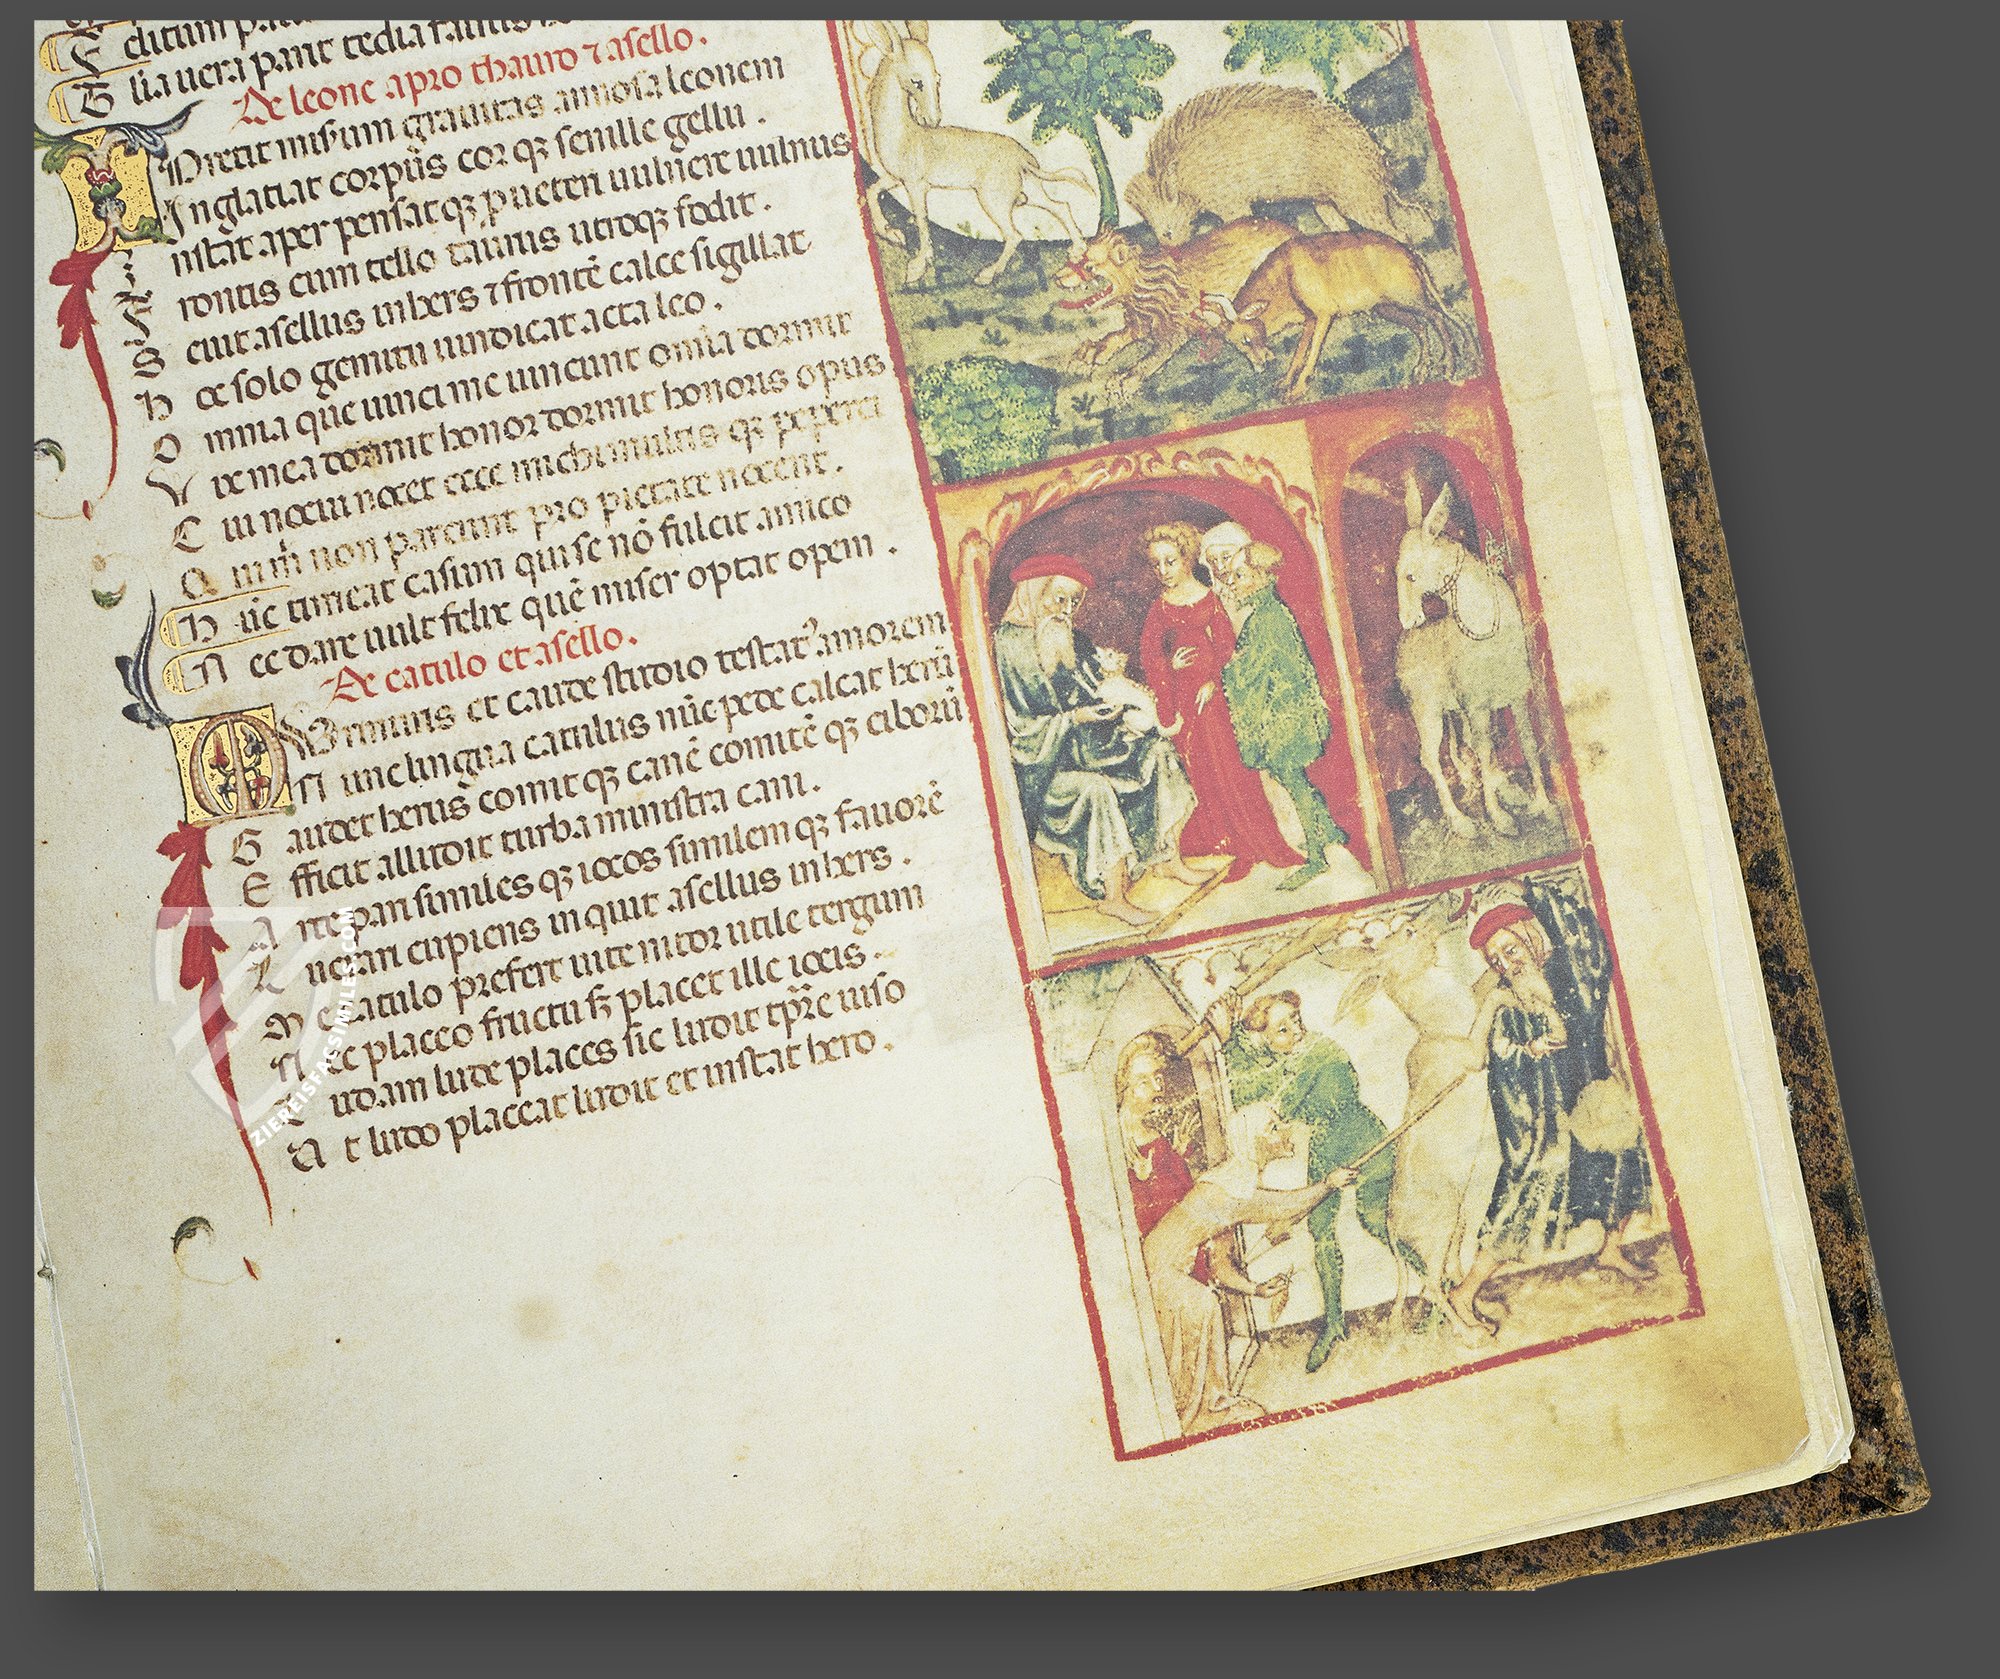 F ditum
B lia uera pant tedia famis
De leone apro thauro ⁊ asello.
Pretit misum grauitas annosa leonem
I nglaciat corpus cor qȝ senille gellu.
instat aper pensat qȝ pueteri uulnere uulnus
F rontis cum tello taurus utroqȝ fodit.
S euit asellus inhers ⁊ frontē calce sigillat
h ec solo gemitu uindicat acta leo.
O mnia que uinci me uincunt omīa dormit
V ix mea dormit honor dormit honoris opus
C ui nocui nocet ecce michi multis qȝ peperci
Q ui m̄ non parcunt pro pietate nocent.
h ūc timeat casum qui se nō fulcit amico
N ec dare uult felix quē miser optat opem.
De catulo et asello.
Murmuris et caude studio testat᾽ amorem
N unc lingua catulus nūc pede calcat herū
G audet herus comit qȝ canē comitē qȝ ciborū
E fficit alludit turba ministra cani.
A rte pari similes qȝ iocos similem qȝ fauorē
L ucrari cupiens inquit asellus inhers.
M e catulo prefert uite nitor utile tergum
N ec placeo fructu sȝ placet ille iocis.
L udam lude places sic ludit tp̄re uiso
U t ludo placeat ludit et instat hero.
ZIEREISFACSIMILES.COM